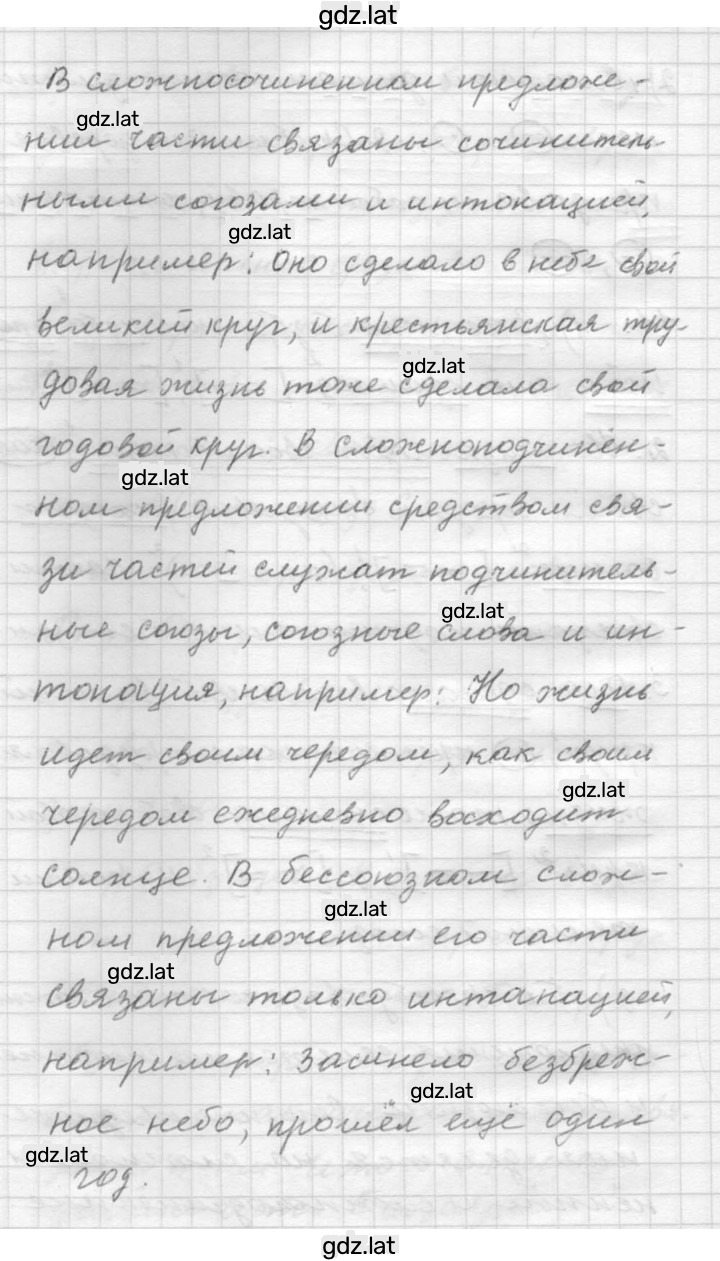 gdz.lat
В сложносочиненном предложе-
gdz.lat
нии части связаны сочинитель-
ными союзами и интонацией,
gdz.lat
например: Оно сделало в небе свой
великий круг, и крестьянская тру-
gdz.lat
довая жизнь тоже сделала свой
годовой круг. В сложноподчинён-
gdz.lat
ном предложении средством свя-
зи частей служат подчинитель-
gdz.lat
ные союзы, союзные слова и ин-
тонация, например: Но жизнь
идет своим чередом, как своим
gdz.lat
чередом ежедневно восходит
солнце. В бессоюзном слож-
gdz.lat
ном предложении его части
gdz.lat
связаны только интанацией,
например: Засинело безбреж-
gdz.lat
ное небо, прошёл ещё один
gdz.lat
год.
gdz.lat